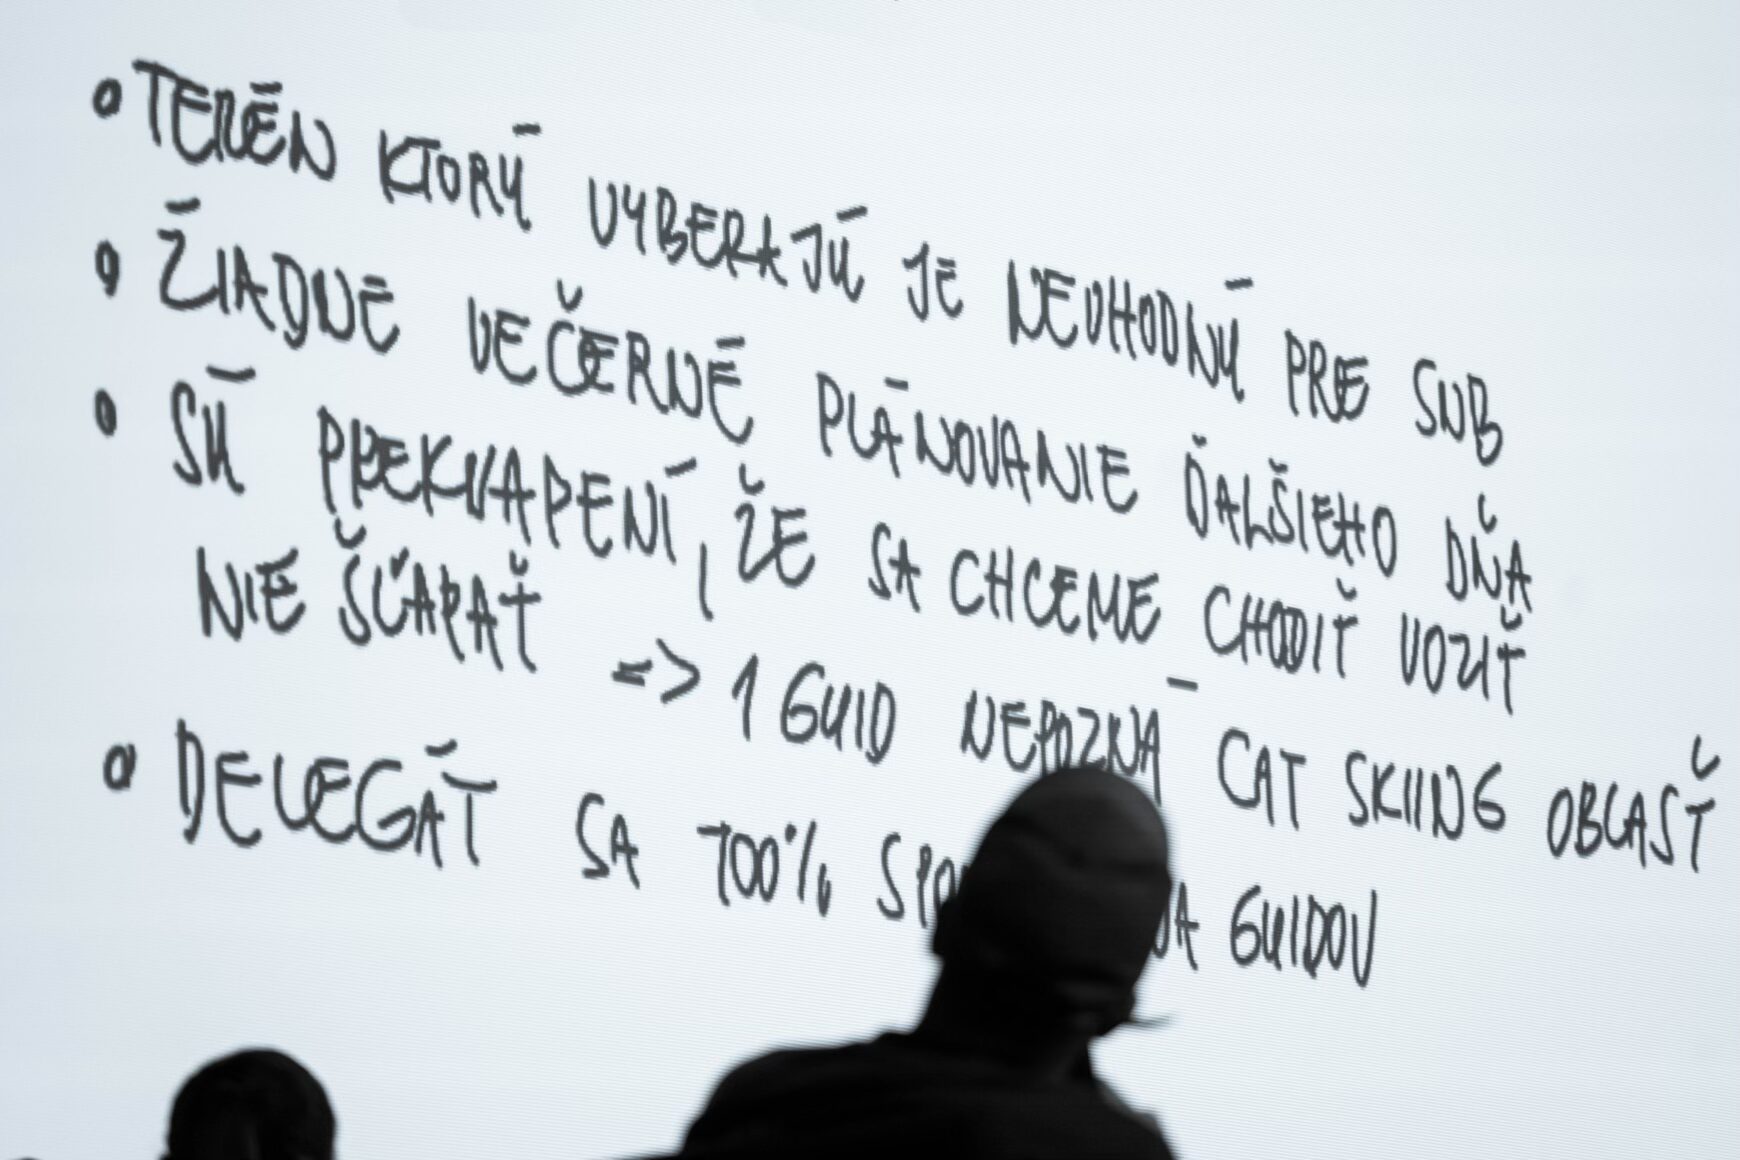 • TERÉN KTORÝ VYBERAJÚ JE NEVHODNÝ PRE SNB
• ŽIADNE VEČERNÉ PLÁNOVANIE ĎALŠIEHO DŇA
• SÚ PREKVAPENÍ, ŽE SA CHCEME CHODIŤ VOZIŤ
NIE ŠĽAPAŤ => 1 GUID NEPOZNÁ CAT SKIING OBLASŤ
• DELEGÁT SA 100% GUIDOV